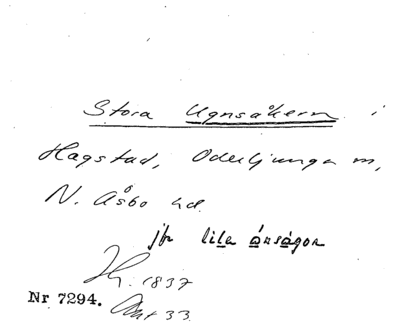 Stora Ugnsåkern i
Hagstad, Oderljunga sn,
N. Åsbo hd.
jfr lila ånsågor
H. 1837
Nr 7294. Akt 33.